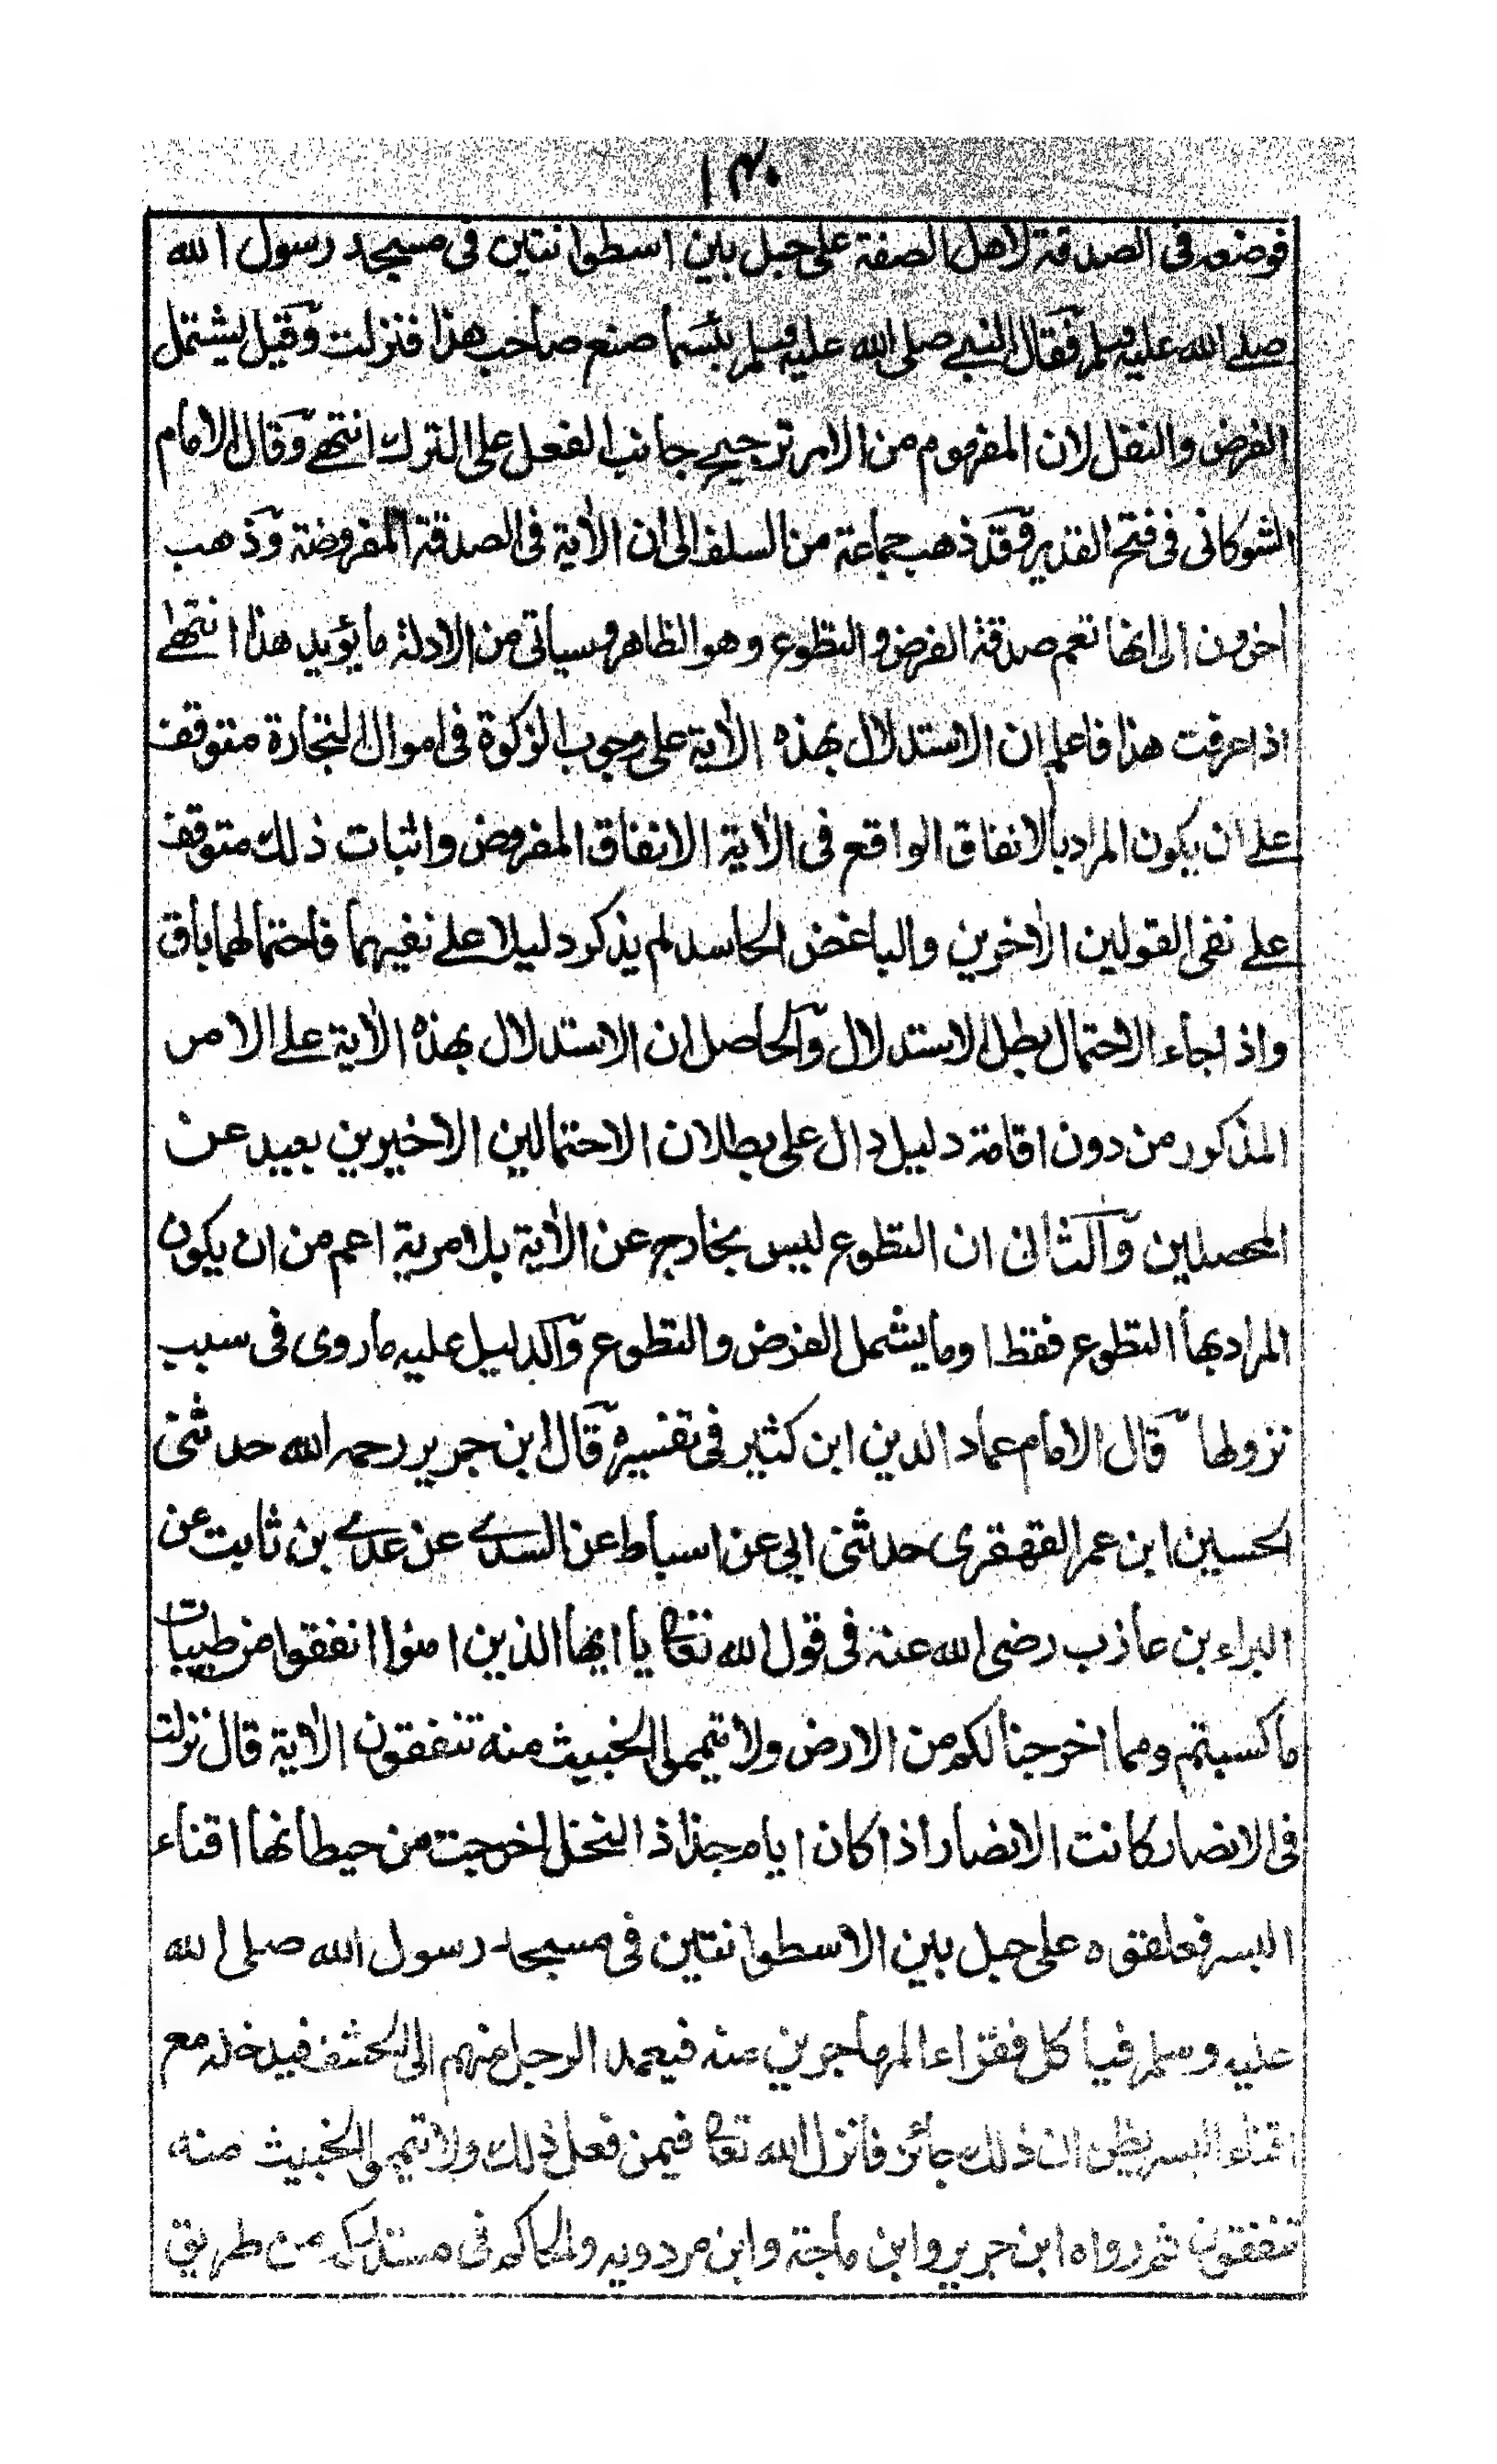 ١٣٠
فوضعه فى الصدقة لاهل الصفة على حبل بين اسطوانتين فى مسجد رسول الله
صلے الله عليه وسلم فقال النبے صلى الله عليه وسلم بئسما صنع صاحب هذا فنزلت وقيل يشتمل
الفرض والنفل لان المفهوم من الامر ترجيح جانب الفعل على الترك انتهے وقال الامام
الشوكانى فى فتح القدير وقد ذهب جماعة من السلف الى ان الاٰية فى الصدقة المفروضة وذهب
اخرون الى انها تعم صدقة الفرض والتطوع وهو الظاهر وسياتى من الادلة ما يؤيد هذا انتهٰے
اذا عرفت هذا فاعلم ان الاستدلال بهذه الاٰية على وجوب الزكوة فى اموال التجارة متوقف
علے ان يكون المراد بالانفاق الواقع فى الاٰية الانفاق المفروض واثبات ذلك متوقف
علے نفى القولين الاٰخرين والباغض الحاسد لم يذكر دليلا علے نفيهما فاحتمالهما باق
واذا جاء الاحتمال بطل الاستدلال والحاصل ان الاستدلال بهذه الاٰية علے الامر
المذكور من دون اقامة دليل دال على بطلان الاحتمالين الاخيرين بعيد عن
المحصلين والثانى ان التطوع ليس بخارج عن الاٰية بلا مرية اعم من ان يكون
المراد بها التطوع فقط او ما يشمل الفرض والتطوع والدليل عليه ما روى فى سبب
نزولها قال الامام عماد الدين ابن كثير فى تفسيره قال ابن جرير رحمه الله حدثنى
الحسين ابن عمر القهقرى حدثنى ابى عن اسباط عن السدے عن عدے بن ثابت عن
البراء بن عازب رضى الله عنه فى قول الله تعالى يا ايها الذين امنوا انفقوا من طيبات
ما كسبتم ومما اخرجنا لكم من الارض ولا تيمموا الخبيث منه تنفقون الاٰية قال نزلت
فى الانصار كانت الانصار اذا كان ايام جذاذ النخل اخرجت من حيطانها اقناء
البسر فعلقوه على حبل بين الاسطوانتين فى مسجد رسول الله صلى الله
عليه وسلم فياكل فقراء المهاجرين منه فيعمد الرجل منهم الى الحشف فيدخله مع
اقناء البسر يظن ان ذلك جائز فانزل الله تعالى فيمن فعل ذلك ولا تيمموا الخبيث منه
تنفقون ثم رواه ابن جرير وابن ماجة وابن مردويه والحاكم فى مستدركه من طريق